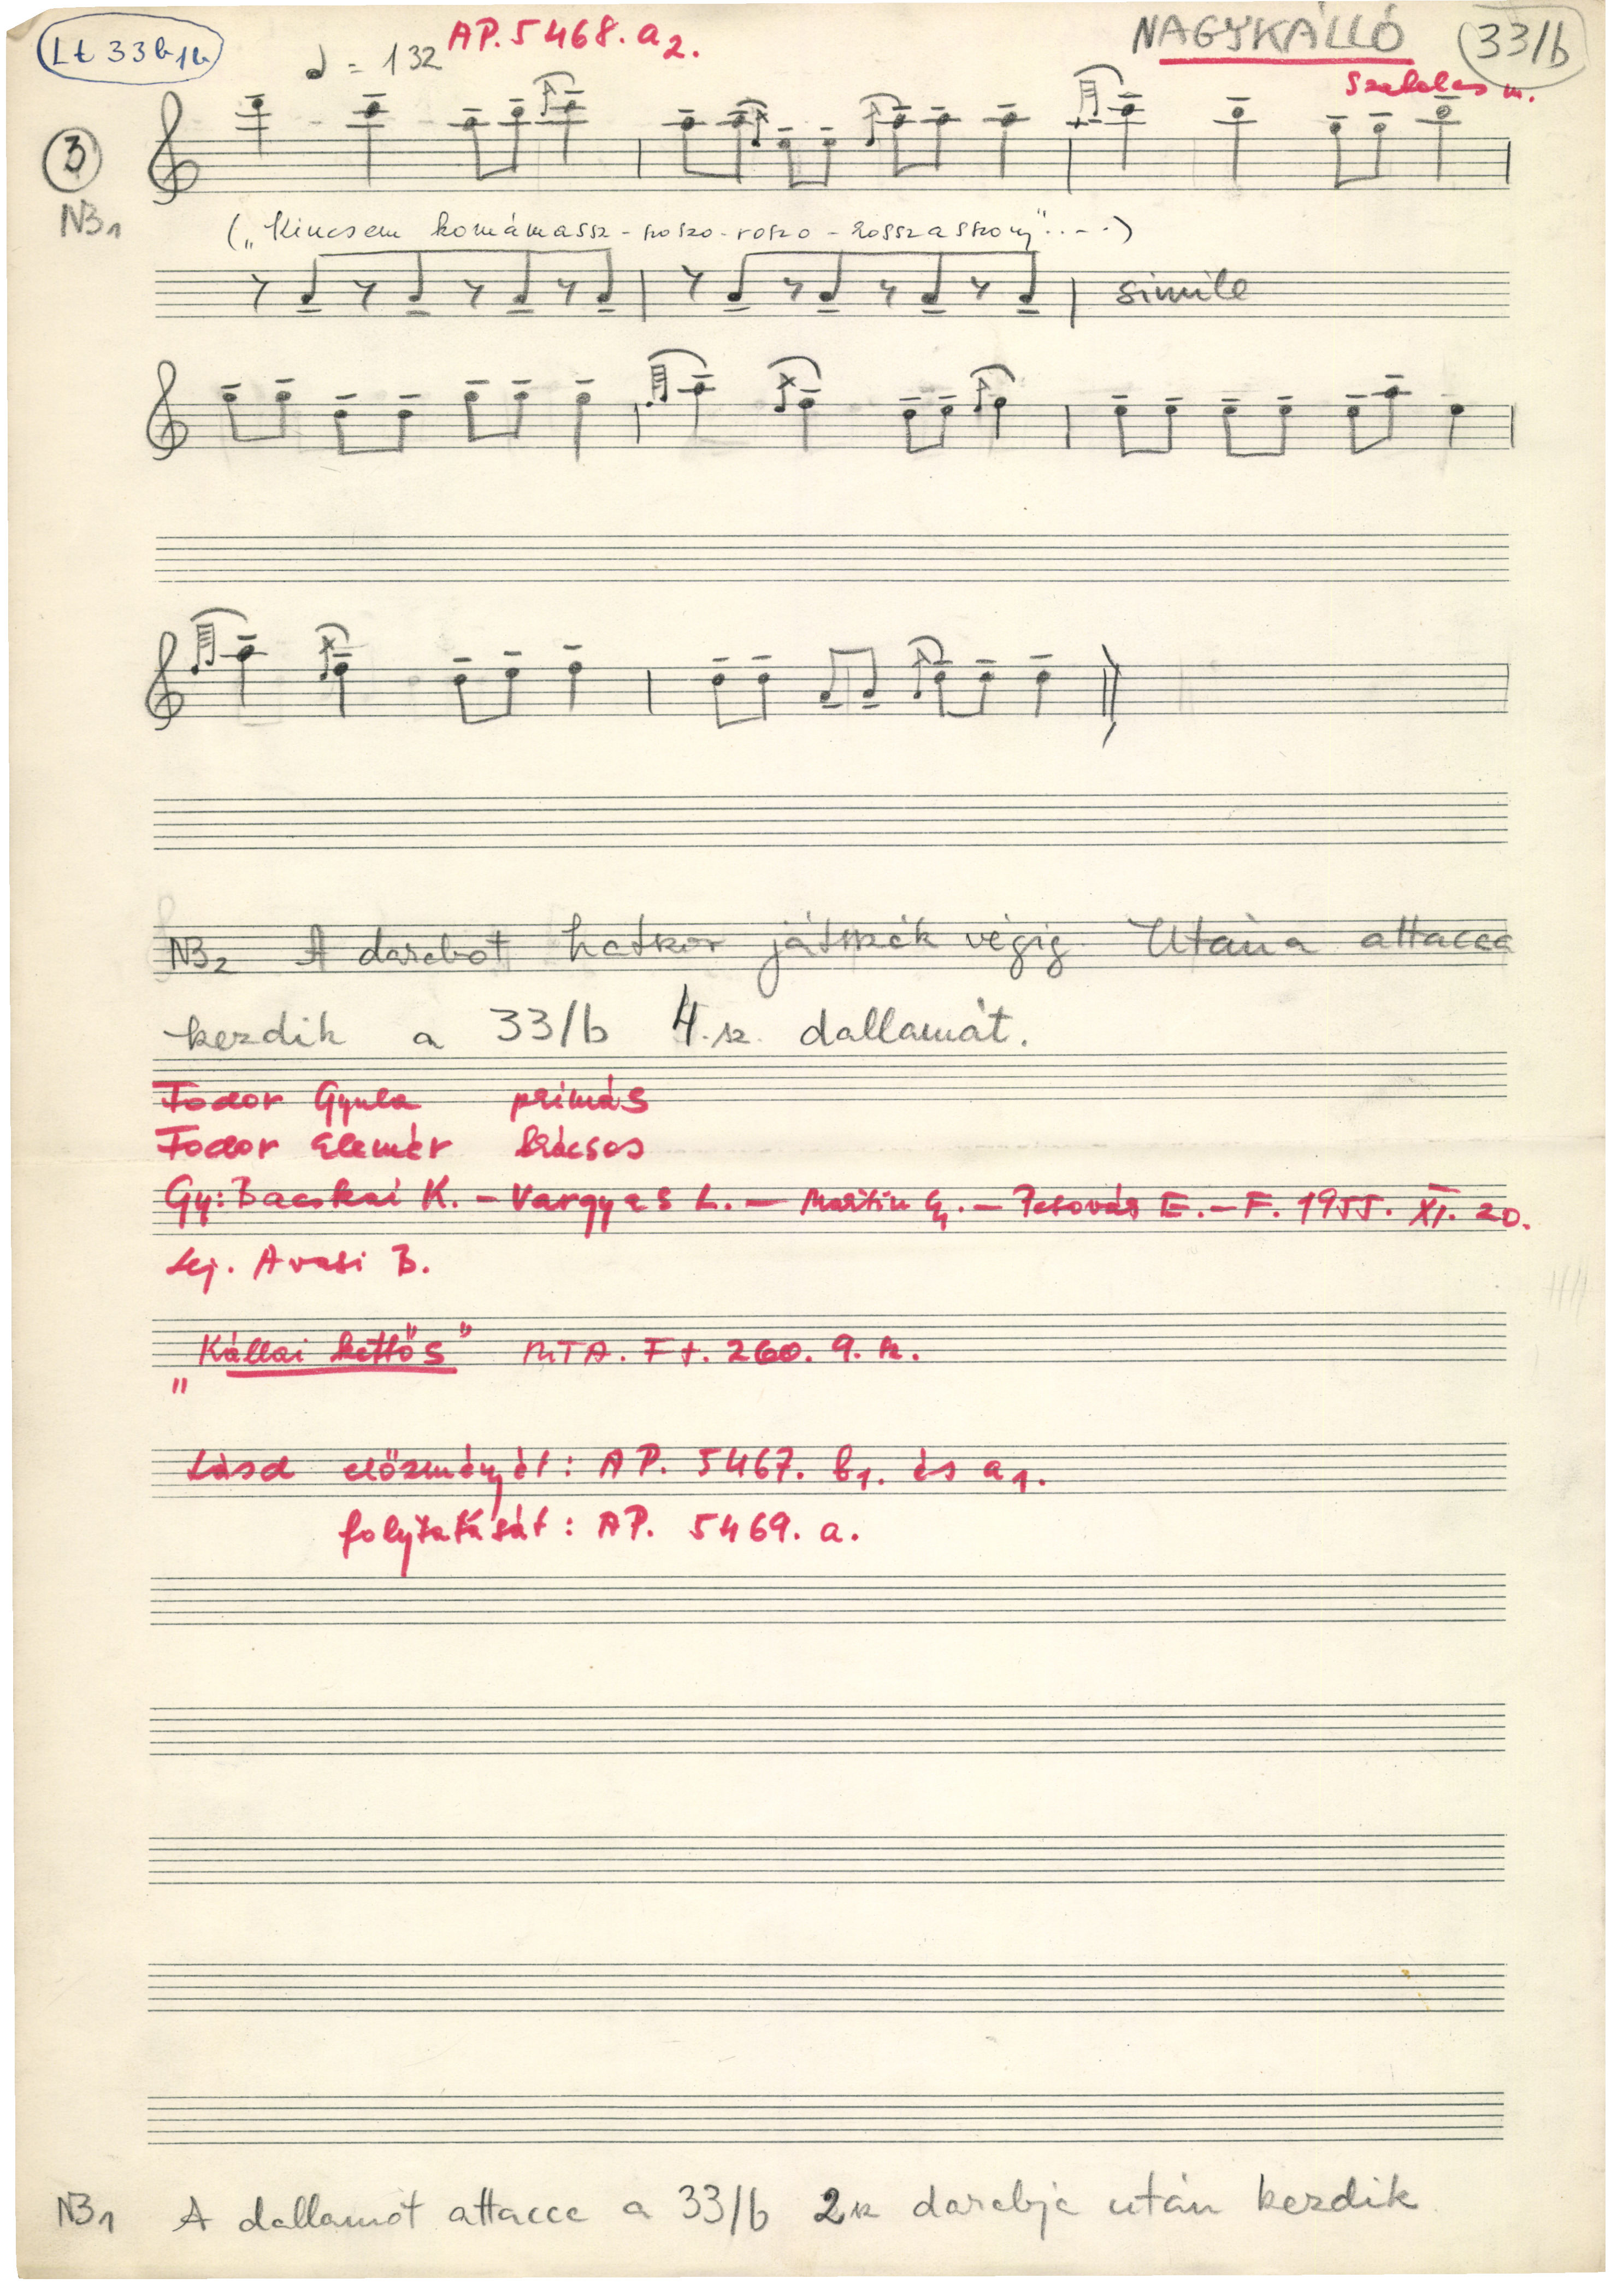 Lt 33b1b
♩ = 132 AP. 5468. a2. NAGYKÁLLÓ 33/b
Szabolcs m.
3
NB1
("Kincsem komámassz - roszo - roszo - rosszasszony"....)
simile
NB2 A darabot hatszor játszák végig. Utána attacca
kezdik a 33/b 4. sz. dallamát.
Fodor Gyula prímás
Fodor Elemér brácsos
Gy: Bacskai K. – Vargyas L. – Martin Gy. – Pesovár E. – F. 1955. XI. 20.
Lej. Avasi B.
"Kállai kettős" MTA. Ft. 260. 9. sz.
"
Lásd előzményét: AP. 5467. b1. és a1.
folytatását: AP. 5469. a.
NB1 A dallamot attacca a 33/b 2 sz darabja után kezdik